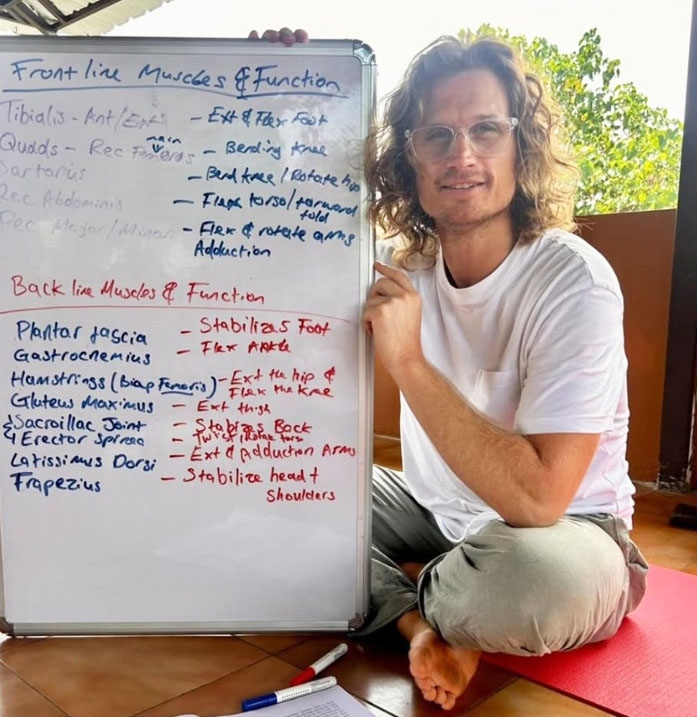 Front line Muscles & Function
Tibialis - Ant/Ext - Ext & Flex Foot
main
Quads - Rec Femoris - Bending knee
Sartorius - Bend knee / Rotate hip
Rec Abdominis - Flex torso/forward
fold
Pec Major/Minor - Flex & rotate arms
Adduction
Back line Muscles & Function
Plantar fascia - Stabilizes Foot
Gastrocnemius - Flex Ankle
Hamstrings (Bicep Femoris) - Ext the hip &
Flex the knee
Gluteus Maximus - Ext thigh
Sacroillac Joint - Stabizes Back
& Erector Spinea - Twist
Latissimus Dorsi - Ext & Adduction Arms
Trapezius - Stabilize head +
Shoulders